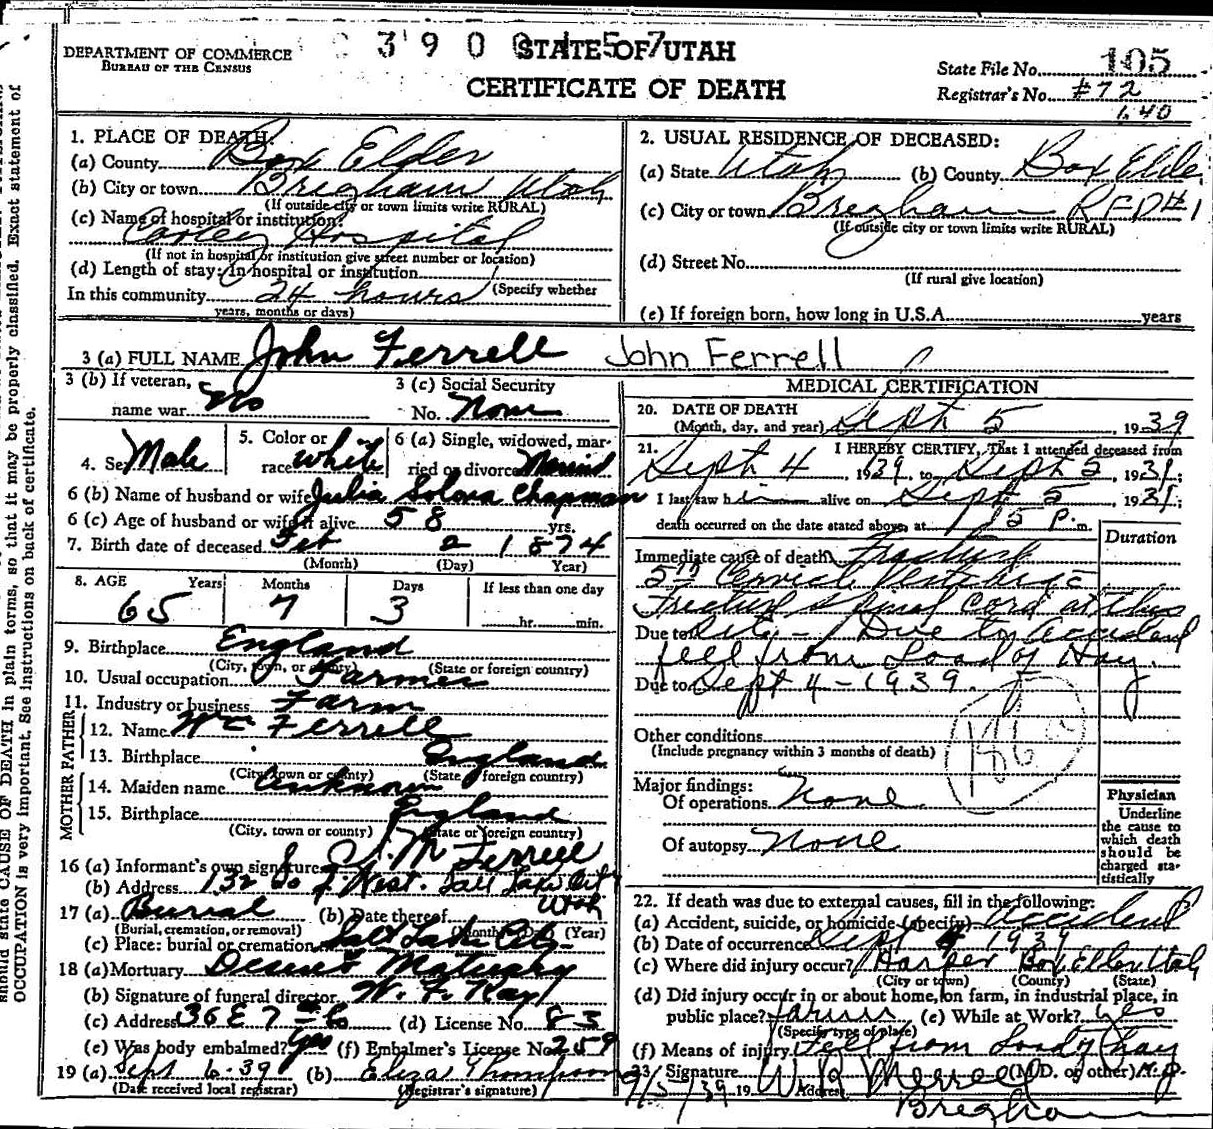 3 9 0 0 1 5 7
DEPARTMENT OF COMMERCE
BUREAU OF THE CENSUS
STATE OF UTAH
CERTIFICATE OF DEATH
State File No. 105
Registrar's No. #72
1.40
1. PLACE OF DEATH:
(a) County Box Elder
(b) City or town Brigham Utah
(If outside city or town limits write RURAL)
(c) Name of hospital or institution:
Hospital
(If not in hospital or institution give street number or location)
(d) Length of stay: In hospital or institution
(Specify whether
In this community 24 hours
years, months or days)
2. USUAL RESIDENCE OF DECEASED:
(a) State Utah (b) County Box Elde
(c) City or town Brigham RFD#1
(If outside city or town limits write RURAL)
(d) Street No.
(If rural give location)
(e) If foreign born, how long in U.S.A. years
3 (a) FULL NAME John Ferrell John Ferrell
3 (b) If veteran,
name war No
3 (c) Social Security
No. None
4. Sex Male
5. Color or
race white
6 (a) Single, widowed, mar-
ried or divorced Married
6 (b) Name of husband or wife Julia Chapman
6 (c) Age of husband or wife if alive 58 yrs.
7. Birth date of deceased Feb 2 1874
(Month) (Day) Year)
8. AGE Years Months Days If less than one day
65 7 3 hr. min.
9. Birthplace England
(City, town, or county) (State or foreign country)
10. Usual occupation Farmer
11. Industry or business Farm
MOTHER FATHER
12. Name Wm Ferrell
13. Birthplace England
(City, town or county) (State or foreign country)
14. Maiden name Unknown
15. Birthplace England
(City, town or county) (State or foreign country)
16 (a) Informant's own signature J. M Ferrell
(b) Address 132 So West. Salt Lake City
Utah
17 (a) Burial (b) Date thereof
(Burial, cremation, or removal) (Month) (Day) (Year)
(c) Place: burial or cremation Salt Lake City
18 (a) Mortuary Deseret Mortuary
(b) Signature of funeral director W. F. Kay
(c) Address 36 E 7 So (d) License No. 83
(e) Was body embalmed? Yes (f) Embalmer's License No. 259
19 (a) Sept 6-39 (b) Eliza Thompson
(Date received local registrar) (Registrar's signature)
MEDICAL CERTIFICATION
20. DATE OF DEATH
(Month, day, and year) Sept 5, 1939
21. I HEREBY CERTIFY, That I attended deceased from
Sept 4 1939 to Sept 5, 1939;
I last saw him alive on Sept 5, 1939;
death occurred on the date stated above, at 1 15 P. m.
Duration
Immediate cause of death Fracture
5th Cervical Vertebrae
Fracture Spinal Cord at this
Due to site - Due to Accident
fell from Load of Hay.
Due to Sept 4 - 1939.
186
Other conditions
(Include pregnancy within 3 months of death)
Major findings:
Of operations None
Of autopsy None
Physician
Underline
the cause to
which death
should be
charged sta-
tistically
22. If death was due to external causes, fill in the following:
(a) Accident, suicide, or homicide (specify) Accident
(b) Date of occurrence Sept 4 1939
(c) Where did injury occur? Harper Box Elder Utah
(City or town) (County) (State)
(d) Did injury occur in or about home, on farm, in industrial place, in
public place? farm (e) While at Work? Yes
(Specify type of place)
(f) Means of injury Fell from Load of hay
23. Signature W R Merrell (M.D. or other) M.D.
9/5/39 19 Address Brigham
should state CAUSE OF DEATH in plain terms, so that it may be properly classified. Exact statement of
OCCUPATION is very important. See instructions on back of certificate.